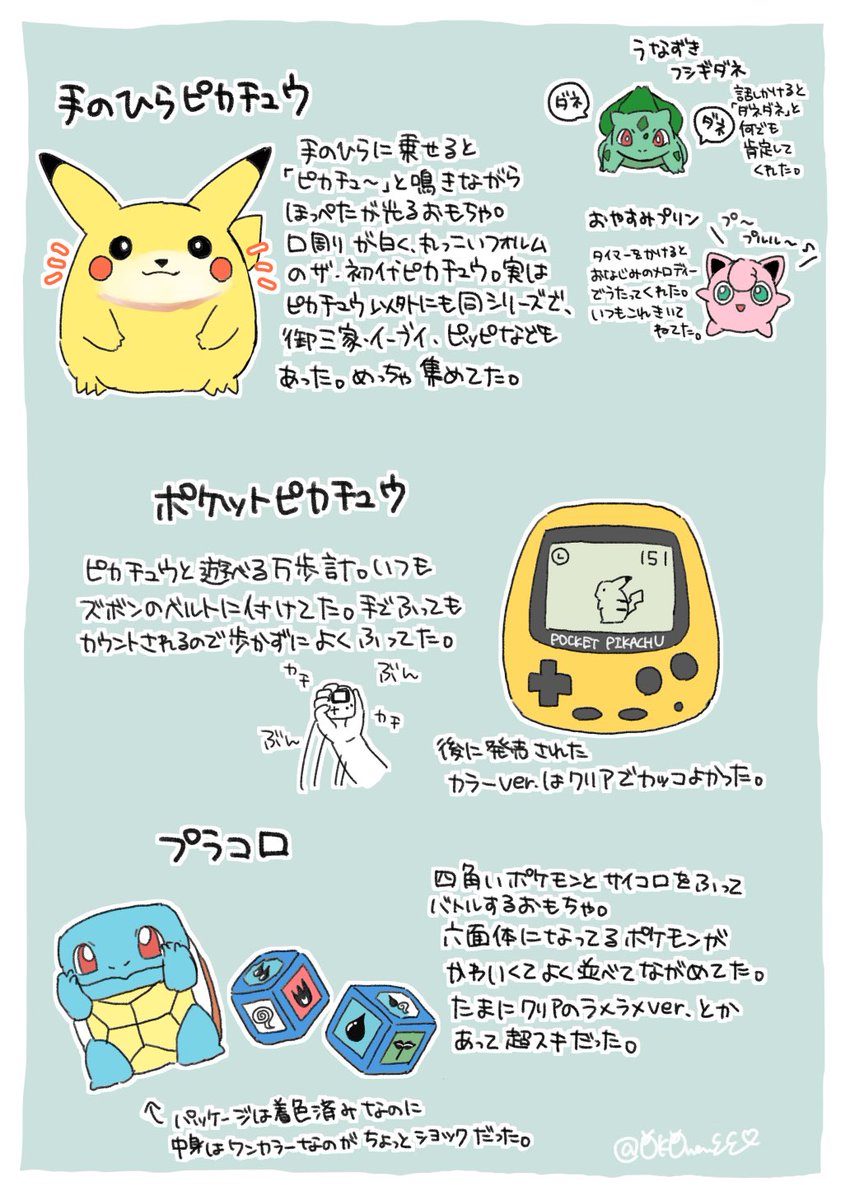 手のひらピカチュウ
手のひらに乗せると
「ピカチュ〜」と鳴きながら
ほっぺたが光るおもちゃ。
口周りが白く、丸っこいフォルム
のザ・初代ピカチュウ。実は
ピカチュウ以外にも同シリーズで、
御三家・イーブイ、ピッピなども
あった。めっちゃ集めてた。
うなずき
フシギダネ
ダネ
ダネ
話しかけると
「ダネダネ」と
何でも
肯定して
くれた。
おやすみプリン
プ〜
プルル〜♪
タイマーをかけると
おなじみのメロディー
でうたってくれた。
いつもこれきいて
ねてた。
ポケットピカチュウ
ピカチュウと遊べる万歩計。いつも
ズボンのベルトに付けてた。手でふっても
カウントされるので歩かずによくふってた。
カチ
ぶん
ぶん
カチ
151
POCKET PIKACHU
後に発売された
カラーver.はクリアでカッコよかった。
プラコロ
四角いポケモンとサイコロをふって
バトルするおもちゃ。
六面体になってるポケモンが
かわいくてよく並べてながめてた。
たまにクリアのラメラメver.とか
あって超スキだった。
↑パッケージは着色済みなのに
中身はワンカラーなのがちょっとショックだった。